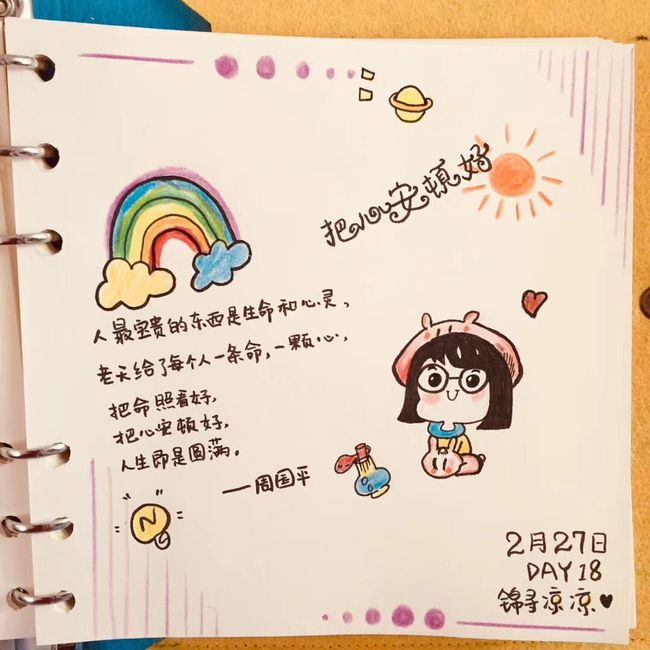 把心安顿好
人最宝贵的东西是生命和心灵、
老天给了每个人一条命,一颗心,
把命照看好,
把心安顿好,
人生即是圆满。
——周国平
N
2月27日
DAY 18
锦子凉凉♥